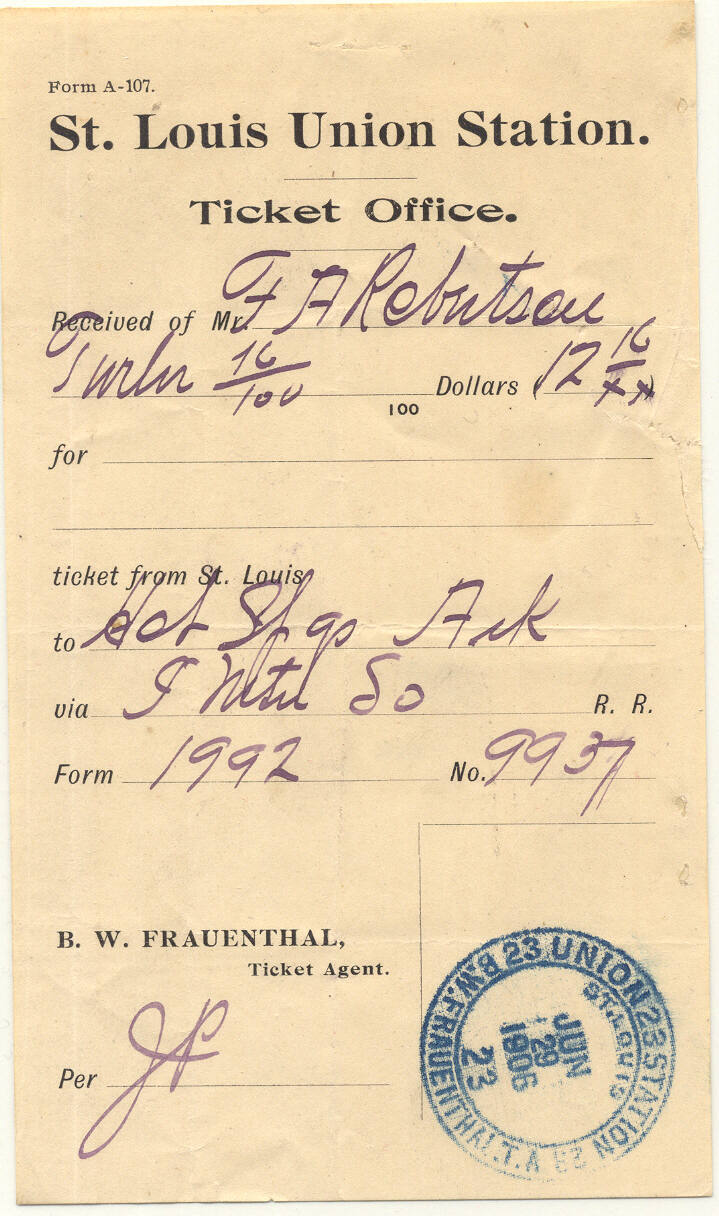 Form A-107.
St. Louis Union Station.
Ticket Office.
Received of Mr. F A Robertson
Twelve 16/100 Dollars (12 16/xx)
100
for
ticket from St. Louis
to Hot Spgs Ark
via I Mtn So R. R.
Form 1992 No. 9937
B. W. FRAUENTHAL,
Ticket Agent.
Per JP
B.W. FRAUENTHAL T.A. 23 UNION 23 STATION 23
ST. LOUIS
JUN
29
1906
23